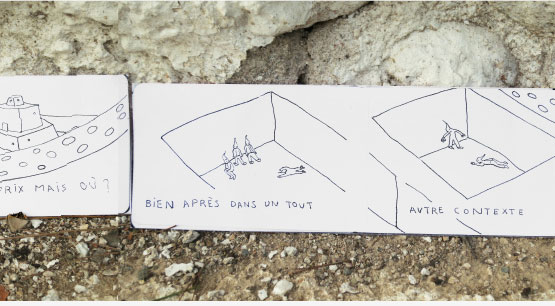 PRIX MAIS OÙ ?
BIEN APRÈS DANS UN TOUT
AUTRE CONTEXTE